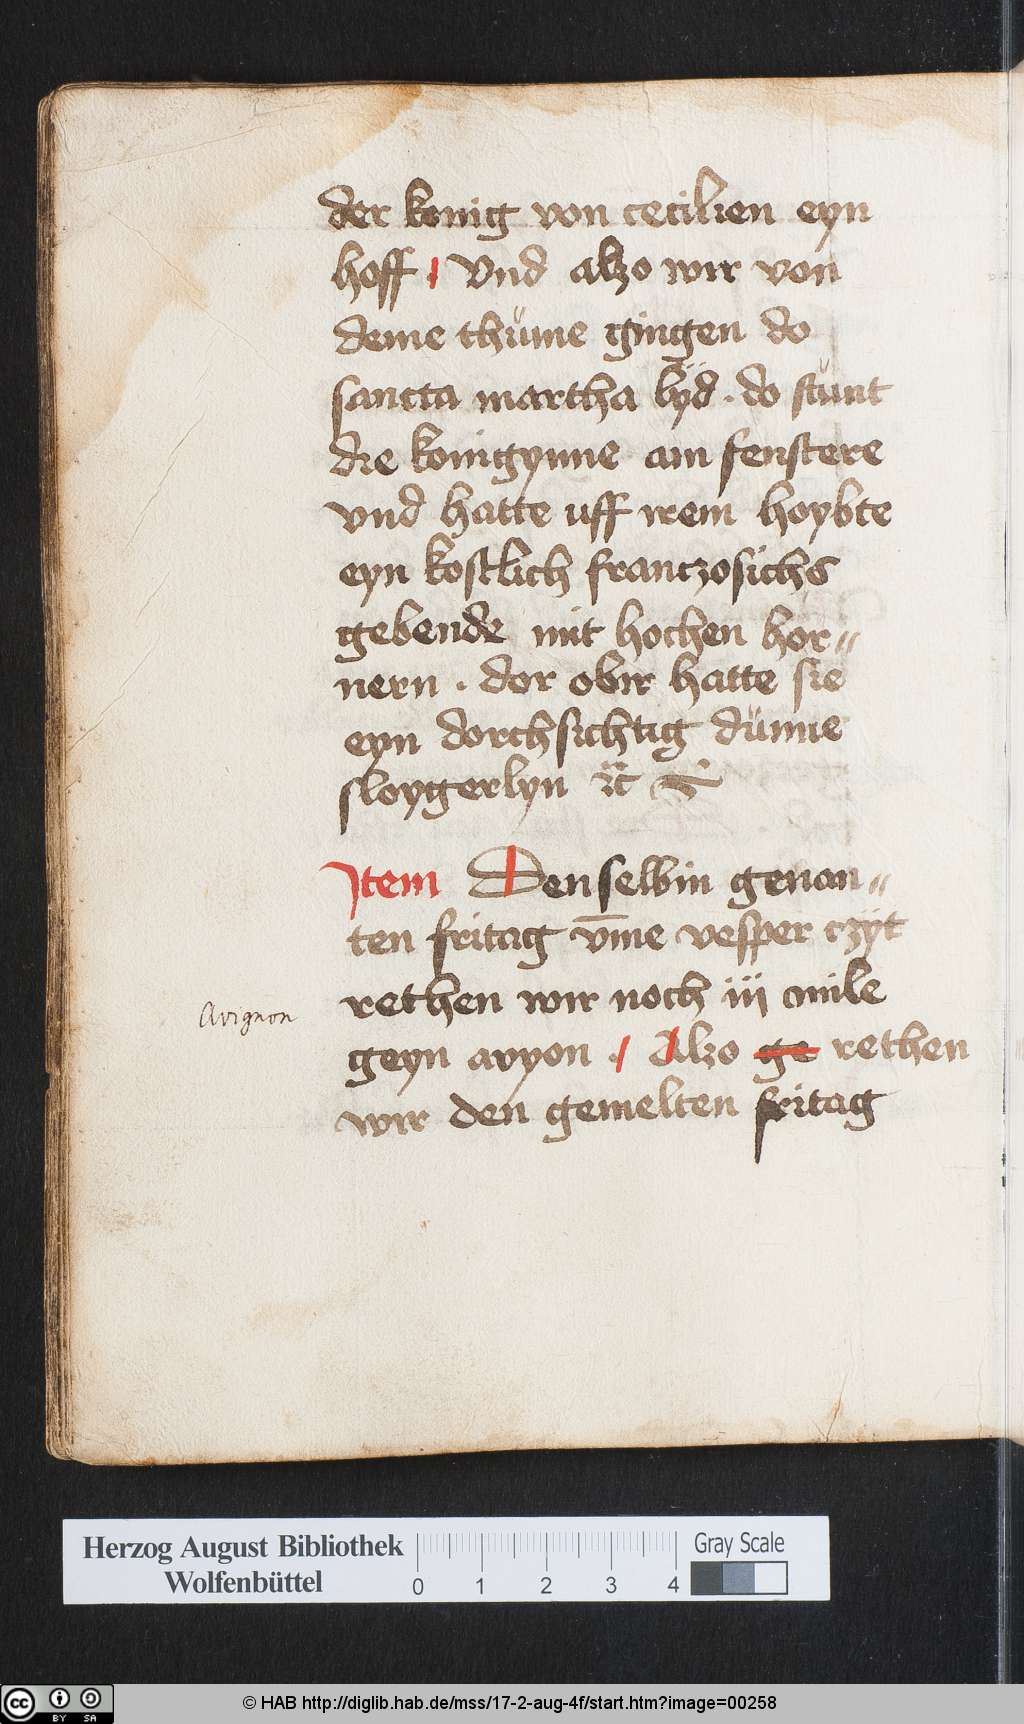 der konig von cecilien eyn
hoff . Vnd alzo wir von
deme thüme gingen do
sancta martha lÿd . do stünt
die konigynne am fenstere
vnd hatte uff irem hoybte
eyn kostlich franczosichs
gebende mit hochen hor〃
nern . dor obir hatte sie
eyn dorchsichtig dünne
sloygerlyn ꝛc
Item Denselbin genan〃
ten fritag vm̅e vesper czÿt
rethen wir noch iij mile
Avignon
geyn avyon . Alzo ge rethen
wir den gemelten fritag
Herzog August Bibliothek
Wolfenbüttel
0 1 2 3 4
Gray Scale
cc BY SA
© HAB http://diglib.hab.de/mss/17-2-aug-4f/start.htm?image=00258